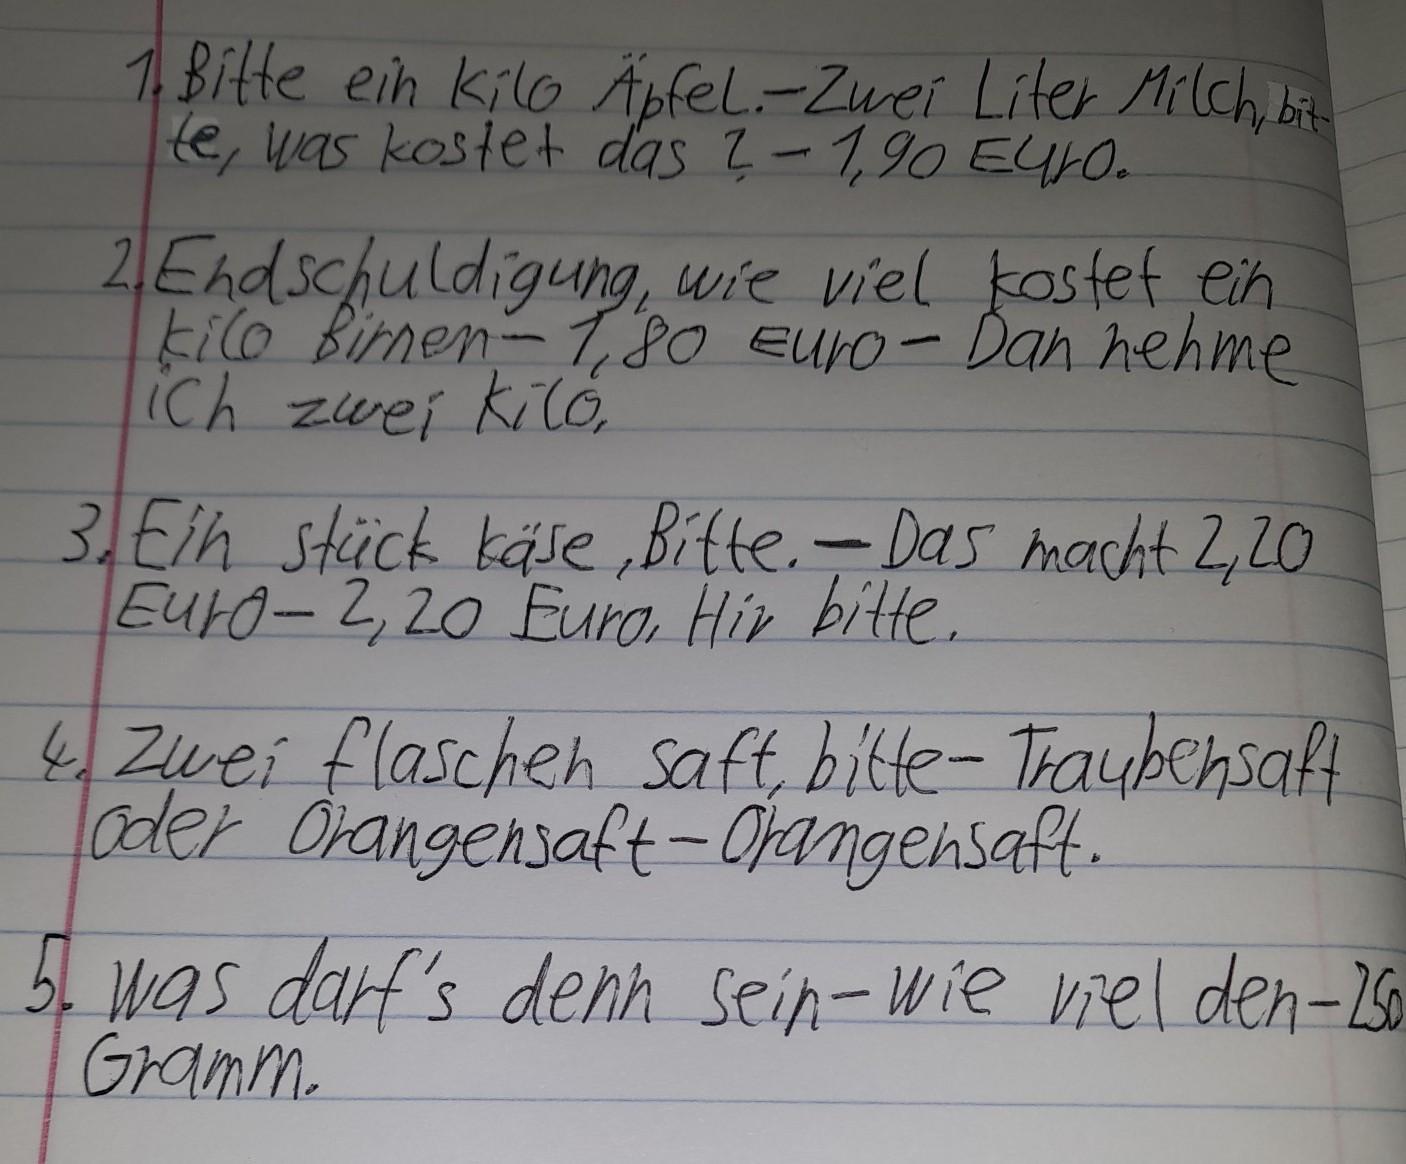 1. Bitte ein Kilo Äpfel.-Zwei Liter Milch, bit-
te, was kostet das ? - 1,90 Euro.
2. Endschuldigung, wie viel kostet ein
kilo Birnen - 1,80 Euro - Dan nehme
ich zwei kilo.
3. Ein stück käse, Bitte. - Das macht 2,20
Euro - 2,20 Euro. Hir bitte.
4. Zwei flaschen saft, bitte - Traubensaft
oder Orangensaft - Orangensaft.
5. was darf's denn sein - wie viel den - 250
Gramm.